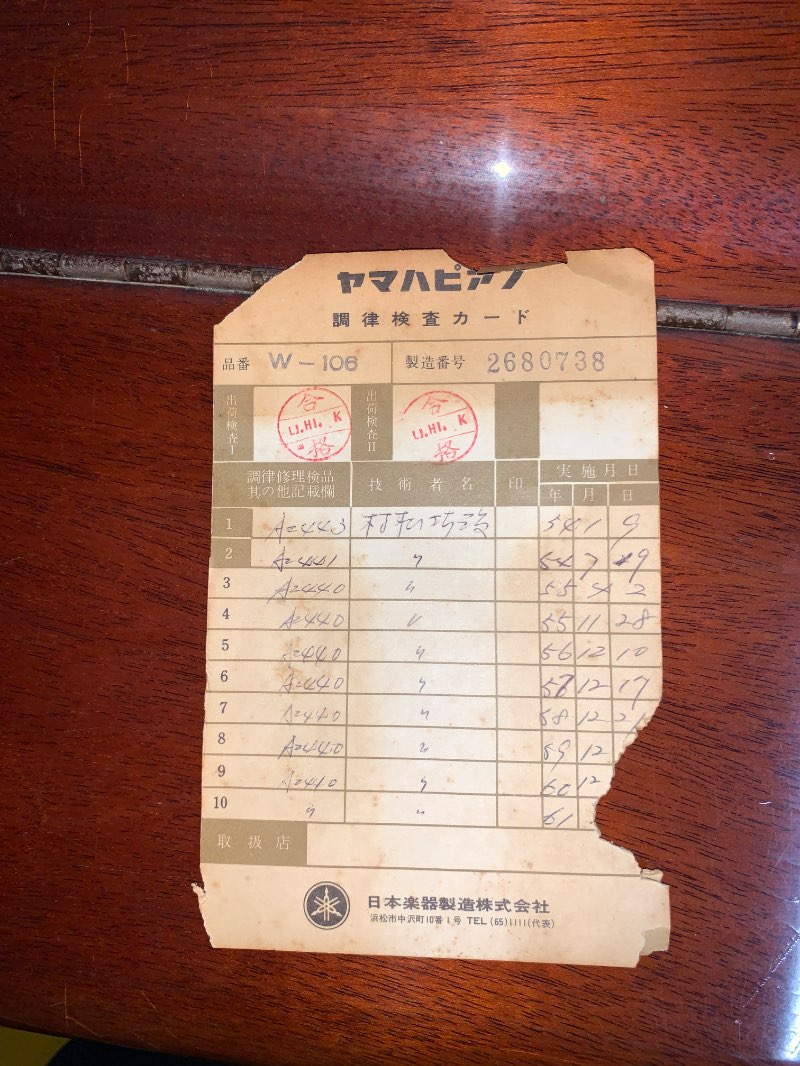 ヤマハピアノ
調律検査カード
品番 W-106 製造番号 2680738
出荷検査I 合格 LJ.HI. K 出荷検査II 合格 LJ.HI. K
調律修理検品其の他記載欄 技術者名 印 実施月日
年 月 日
1 A=443 54 1 9
2 A=441 〃 54 7 19
3 A=440 〃 55 4 2
4 A=440 〃 55 11 28
5 A=440 〃 56 12 10
6 A=440 〃 57 12 17
7 A=440 〃 58 12
8 A=440 〃 59 12
9 A=440 〃 60 12
10 〃 〃 61
取扱店
日本楽器製造株式会社
浜松市中沢町10番1号 TEL (65)1111(代表)